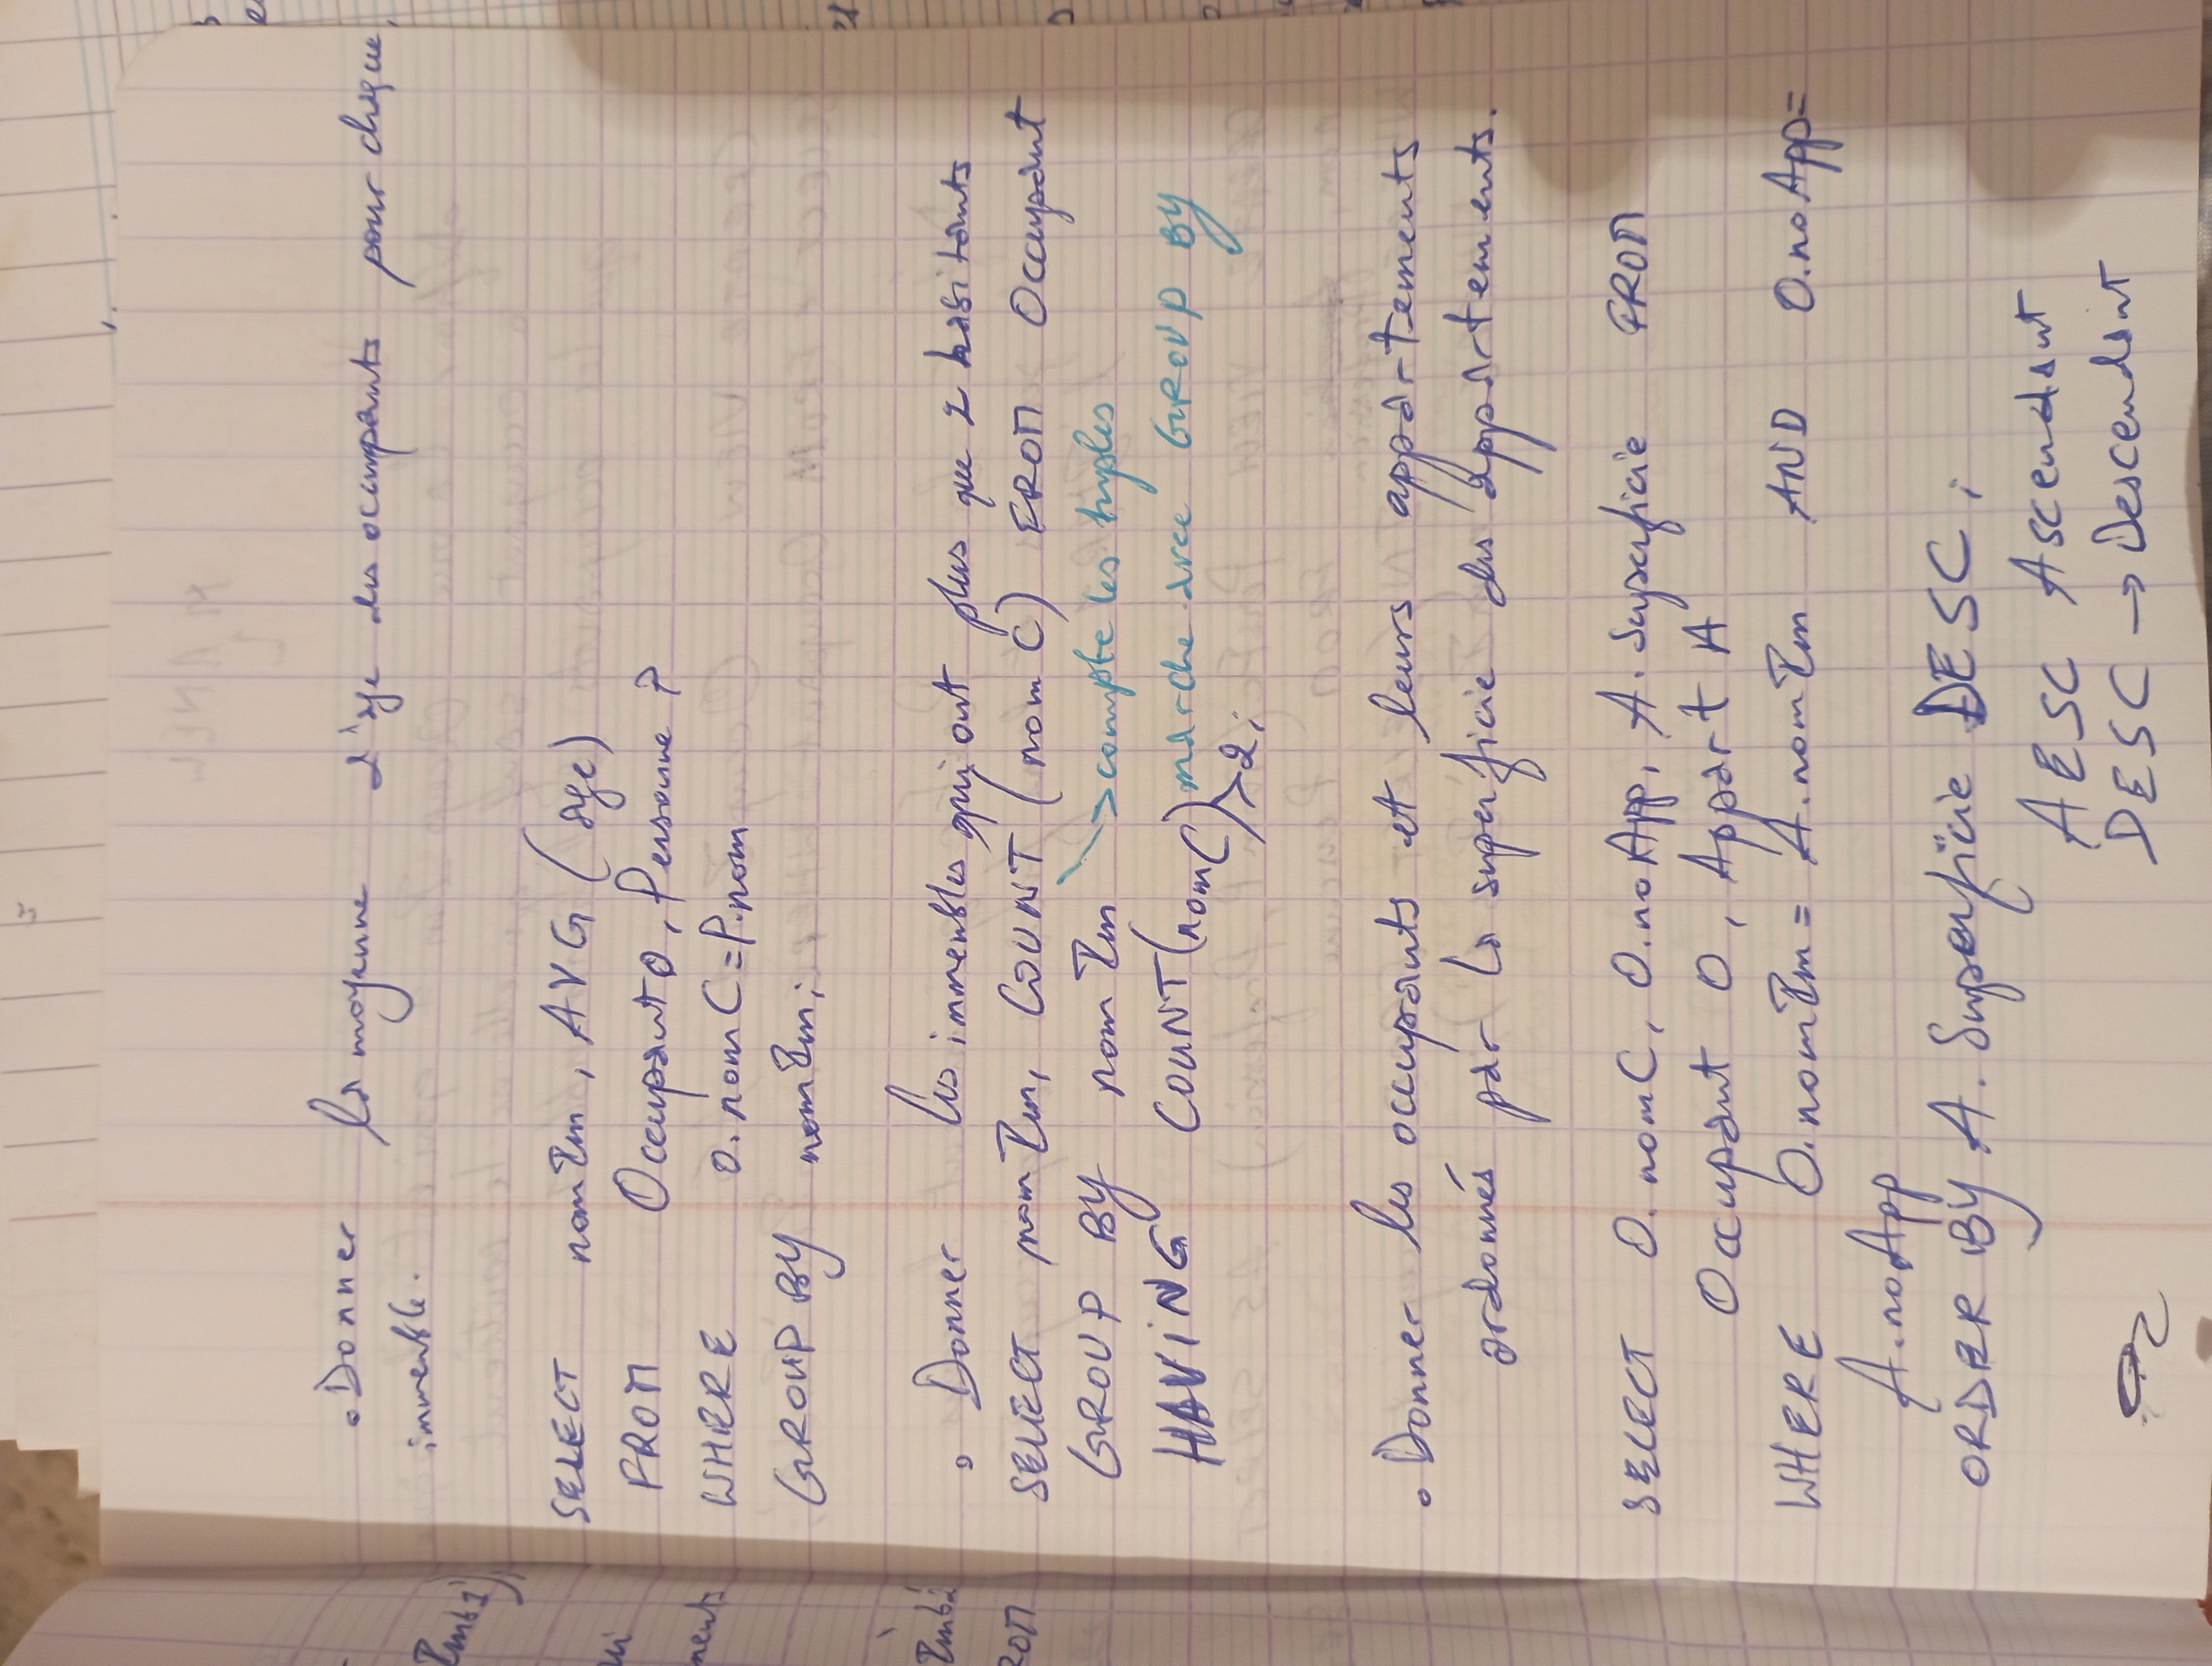 • Donner la moyenne d'âge des occupants pour chaque
immeuble.
SELECT nomIm, AVG (age)
FROM Occupant O, Personne P
WHERE O.nomC = P.nom
GROUP BY nomIm;
• Donner les immeubles qui ont plus que 2 habitants
SELECT nomIm, COUNT (nomC) FROM Occupant
GROUP BY nomIm → compte les tuples
HAVING COUNT (nomC) >2; marche avec GROUP BY
• Donner les occupants et leurs appartements
ordonnés par la superficie des appartements.
SELECT O.nomC, O.noApp, A.Superficie FROM
Occupant O, Appart A
WHERE O.nomIm = A.nomIm AND O.noApp =
A.noApp
ORDER By A.Superficie DESC;
AESC Ascendant
DESC → Descendant